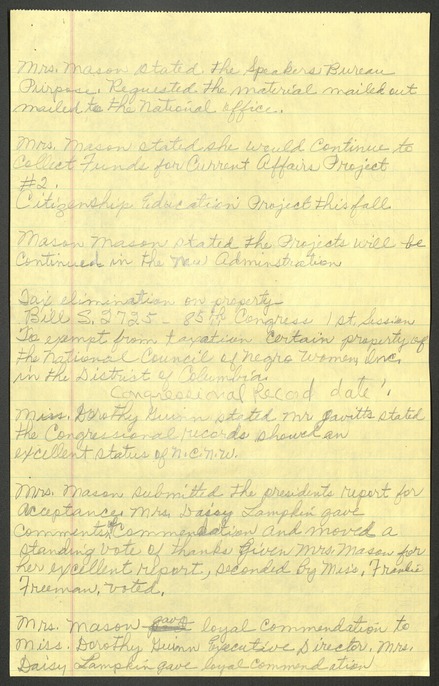 Mrs. Mason stated the Speakers Bureau
Purpose. Requested the material mailed out
mailed to the National Office.
Mrs. Mason stated she would Continue to
Collect Funds for Current Affairs Project
#2.
Citizenship Education Project this fall
Mason Mason stated the Projects will be
Continued in the New Adminstration
Tax elimination on property-
Bill S. 2725 - 85th Congress 1st. Session
To exempt from taxation Certain property of
the National Council of Negro Women, Inc.
in the District of Columbia.
Congressional Record date
Miss. Dorothy Guinn stated Mr Gavitts stated
the Congressional records showed an
excellent status of N.C.N.W.
Mrs. Mason submitted the presidents report for
acceptance. Mrs. Daisy Lampkin gave
Comments of Commendation and moved a
standing vote of thanks given Mrs Mason for
her excellent report, seconded by Miss. Frankie
Freeman, voted.
Mrs. Mason gave loyal commendation to
Miss. Dorothy Guinn Executive Director. Mrs.
Daisy Lampkin gave loyal commendation